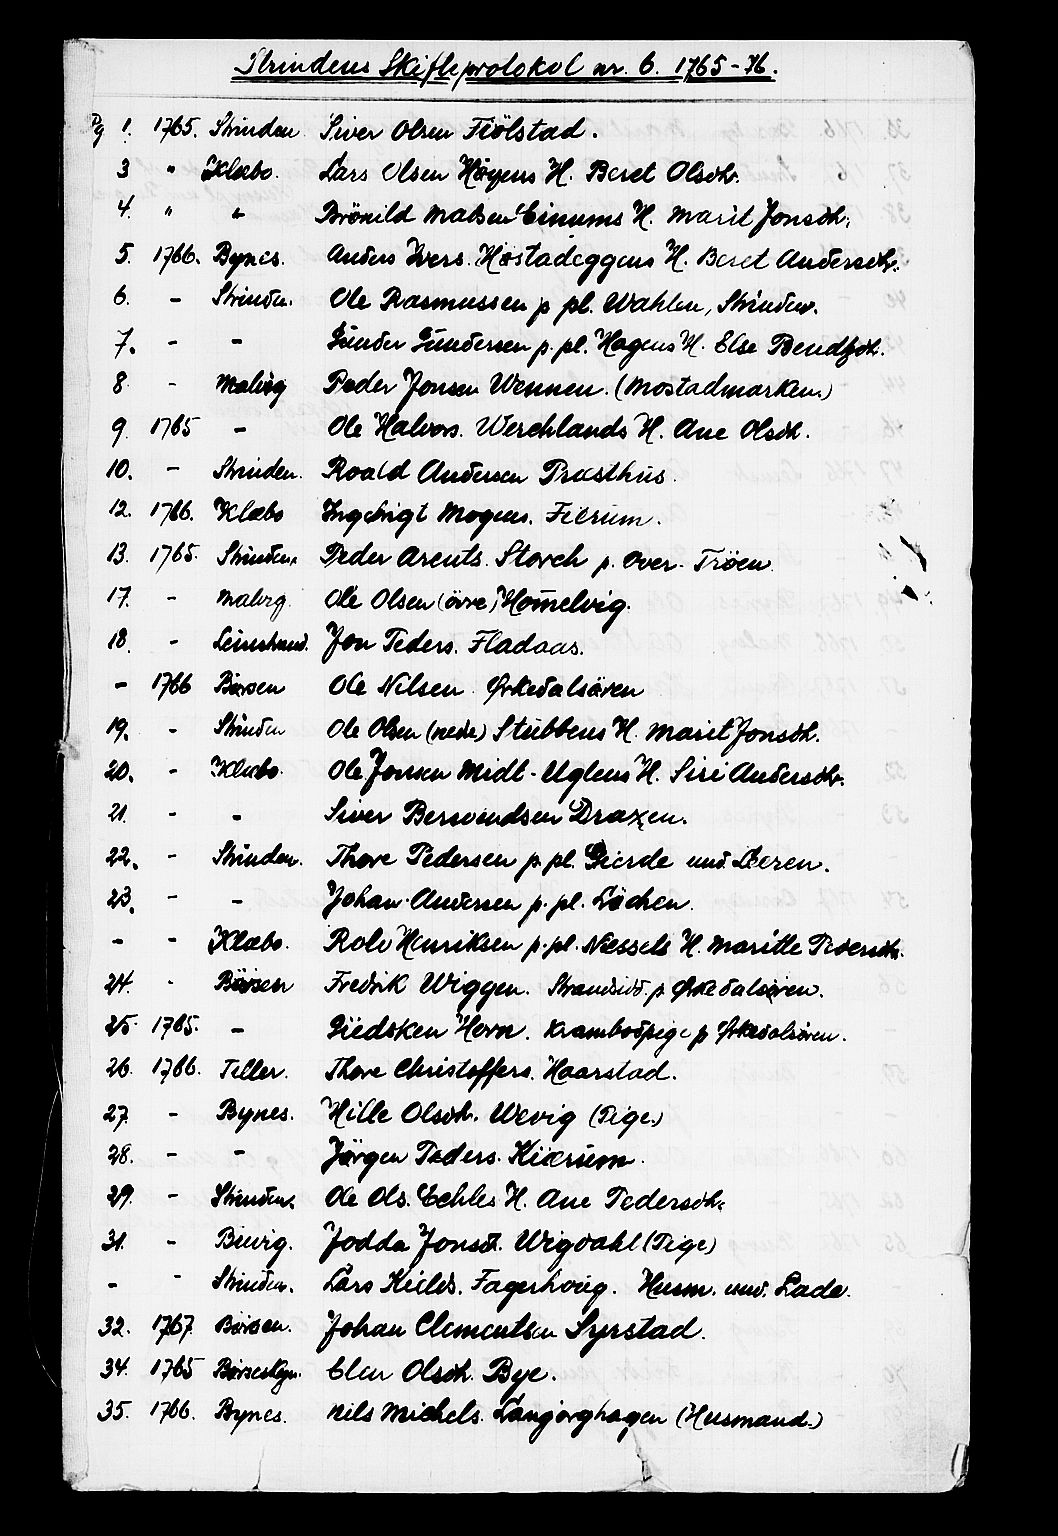 Strindens Skifteprotokol nr. 6. 1765-76.
Pg 1. 1765. Strinden Siver Olsen Fiölstad.
3 " Klæbo. Lars Olsen Høyens H. Beret Olsdr.
4. " " Brönild Matsen Einums H. Marit Jonsdr.
5. 1766. Bynes. Anders Ivers. Høstadeggens H. Beret Andersdr.
6. - Strinden. Ole Rasmussen p pl. Wahlen, Strinden.
7. - - Gunder Gundersen p. pl. Hagens H. Else Bendtzdr.
8 - Malvig Peder Jonsen Wennen. (Mostadmarken.)
9. 1765 - Ole Halvors. Werchlands H. Ane Olsdr.
10. - Strinden. Roald Andersen Præsthus.
12. 1766. Klæbo Ingebrigt Mogens. Fierum.
13. 1765. Strinden. Peder Arents. Storch p. Over-Tröen
17. - Malvig. Ole Olsen (övre) Homelvig.
18. - Leinstrand. Jon Peders. Fladaas.
- 1766 Börsen Ole Nilsen Ørkedalsören
19. - Strinden Ole Olsen (nedre) Stubbens H. Marit Jonsdr.
20. - Klæbo. Ole Jonsen Midt-Uglens H. Siri Andersdr.
21. - - Siver Bervendsen Draxen.
22. - Strinden. Thore Pedersen p. pl. Gierde und. Leren.
23. - - Johan Andersen p. pl. Löchen.
- - Klæbo. Rolv Henriksen p. pl. Næssets H. Maritte Pedersdr.
24. - Börsen Fredrik Wiggen. Strandsid. p. Ørkedalsören.
25. 1765. - Giedsken Horn. Krambodpige p Ørkedalsören.
26. 1766. Tiller. Thore Christoffers. Haarstad.
27 - Bynes. Hille Olsdr. Wevig (Pige.)
28. - - Jörgen Peders. Kierum.
29. - Strinden. Ole Ols. Echles H. Ane Pedersdr.
31. - Buvig. Jodda Jonsd. Wigdahl (Pige)
- - Strinden. Lars Kields. Fagerhoug. Husm. und. Lade.
32. 1767 Börsen. Johan Clementsen Syrstad.
34. 1765 Börseskgn. Elen Olsdr. Bye.
35. 1766. Bynes. Nils Michels. Langørghagen (Husmand.)